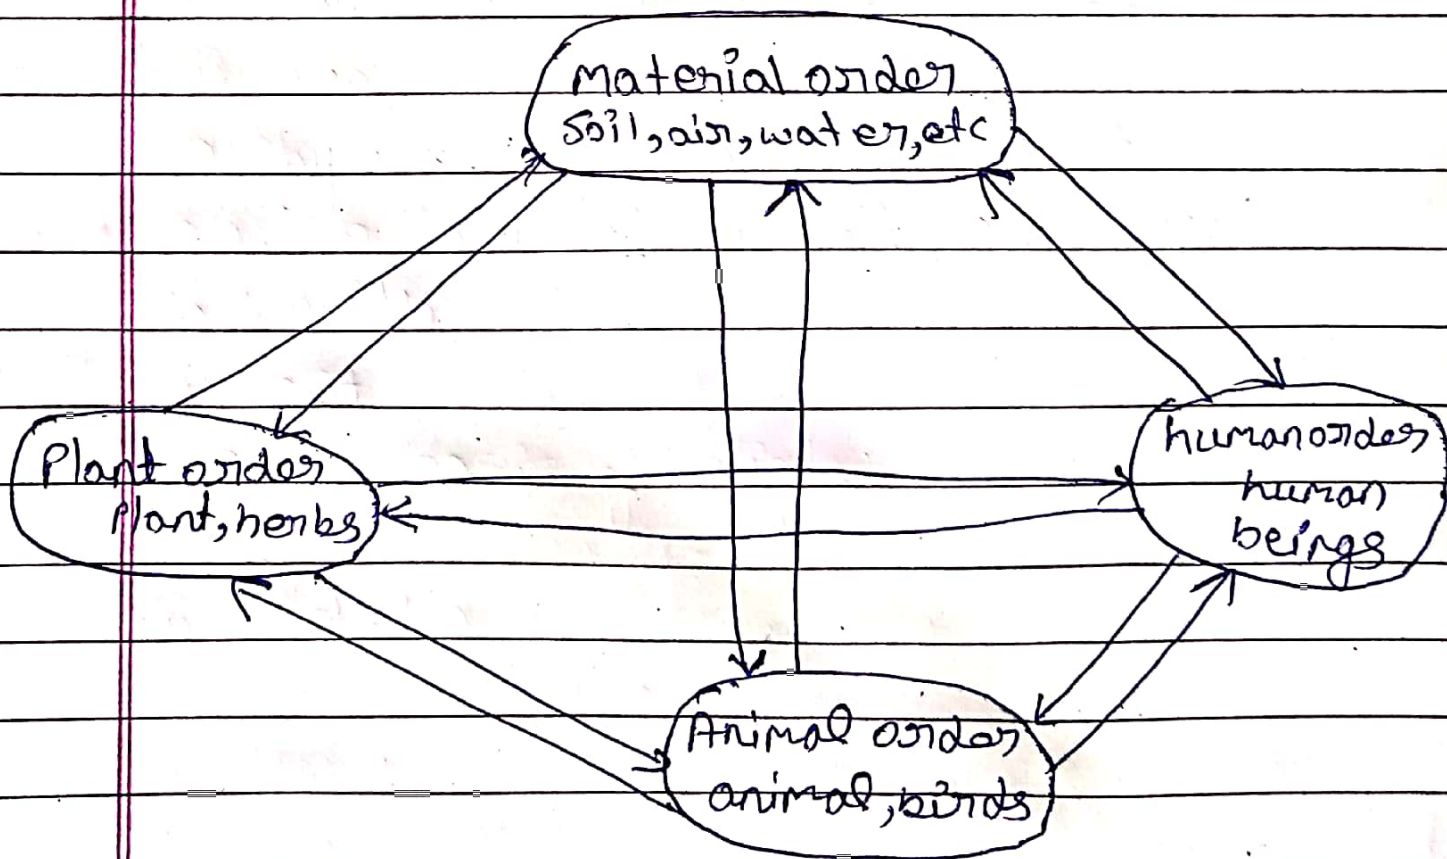 Material order
Soil, air, water, etc
Plant order
Plant, herbs
human order
human
beings
Animal order
animal, birds